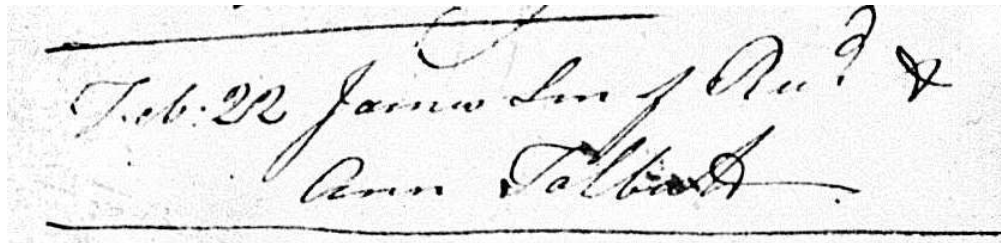 Feb: 22 James Son of Ric^d &
Ann Talbutt